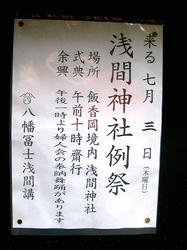 来る七月三日（木曜日）
浅間神社例祭
場所　飯香岡境内　浅間神社
式典　午前十時斎行
余興　午後一時より婦人会の奉納舞踊があります
八幡冨士浅間講